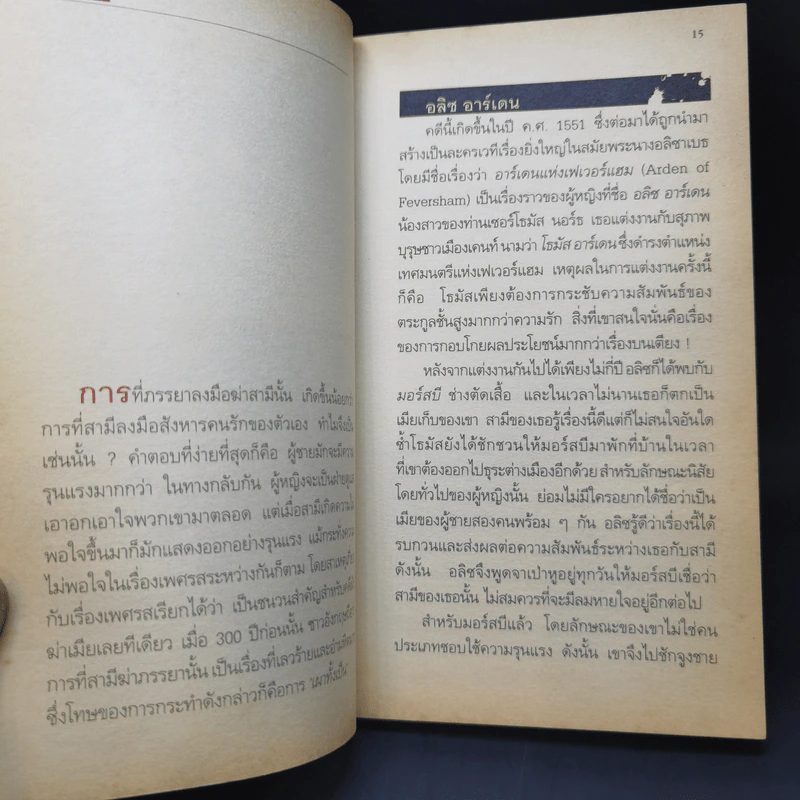 การที่ภรรยาลงมือฆ่าสามีนั้น เกิดขึ้นน้อยกว่า
การที่สามีลงมือสังหารคนรักของตัวเอง ทำไมจึงเป็น
เช่นนั้น ? คำตอบที่ง่ายที่สุดก็คือ ผู้ชายมักจะมีความ
รุนแรงมากกว่า ในทางกลับกัน ผู้หญิงจะเป็นฝ่ายดูแล
เอาอกเอาใจพวกเขามาตลอด แต่เมื่อสามีเกิดความไม่
พอใจขึ้นมาก็มักแสดงออกอย่างรุนแรง แม้กระทั่งความ
ไม่พอใจในเรื่องเพศรสระหว่างกันก็ตาม โดยสาเหตุเกี่ยว
กับเรื่องเพศรสเรียกได้ว่า เป็นชนวนสำคัญสำหรับคดี
ฆ่าเมียเลยทีเดียว เมื่อ 300 ปีก่อนนั้น ชาวอังกฤษถือว่า
การที่สามีฆ่าภรรยานั้น เป็นเรื่องที่เลวร้ายและ
ซึ่งโทษของการกระทำดังกล่าวก็คือการ 'เผาทั้งเป็น'
15
อลิซ อาร์เดน
คดีนี้เกิดขึ้นในปี ค.ศ. 1551 ซึ่งต่อมาได้ถูกนำมา
สร้างเป็นละครเวทีเรื่องยิ่งใหญ่ในสมัยพระนางอลิซาเบธ
โดยมีชื่อเรื่องว่า อาร์เดนแห่งเฟเวอร์แฮม (Arden of
Feversham) เป็นเรื่องราวของผู้หญิงที่ชื่อ อลิซ อาร์เดน
น้องสาวของท่านเซอร์โธมัส นอร์ธ เธอแต่งงานกับสุภาพ
บุรุษชาวเมืองเคนท์ นามว่า โธมัส อาร์เดน ซึ่งดำรงตำแหน่ง
เทศมนตรีแห่งเฟเวอร์แฮม เหตุผลในการแต่งงานครั้งนี้
ก็คือ โธมัสเพียงต้องการกระชับความสัมพันธ์ของ
ตระกูลชั้นสูงมากกว่าความรัก สิ่งที่เขาสนใจนั่นคือเรื่อง
ของการกอบโกยผลประโยชน์มากกว่าเรื่องบนเตียง !
หลังจากแต่งงานกันไปได้เพียงไม่กี่ปี อลิซก็ได้พบกับ
มอร์สบี ช่างตัดเสื้อ และในเวลาไม่นานเธอก็ตกเป็น
เมียเก็บของเขา สามีของเธอรู้เรื่องนี้ดีแต่ก็ไม่สนใจอันใด
ซ้ำโธมัสยังได้ชักชวนให้มอร์สบีมาพักที่บ้านในเวลา
ที่เขาต้องออกไปธุระต่างเมืองอีกด้วย สำหรับลักษณะนิสัย
โดยทั่วไปของผู้หญิงนั้น ย่อมไม่มีใครอยากได้ชื่อว่าเป็น
เมียของผู้ชายสองคนพร้อม ๆ กัน อลิซรู้ดีว่าเรื่องนี้ได้
รบกวนและส่งผลต่อความสัมพันธ์ระหว่างเธอกับสามี
ดังนั้น อลิซจึงพูดจาเป่าหูอยู่ทุกวันให้มอร์สบีเชื่อว่า
สามีของเธอนั้น ไม่สมควรที่จะมีลมหายใจอยู่อีกต่อไป
สำหรับมอร์สบีแล้ว โดยลักษณะของเขาไม่ใช่คน
ประเภทชอบใช้ความรุนแรง ดังนั้น เขาจึงไปชักจูงชาย